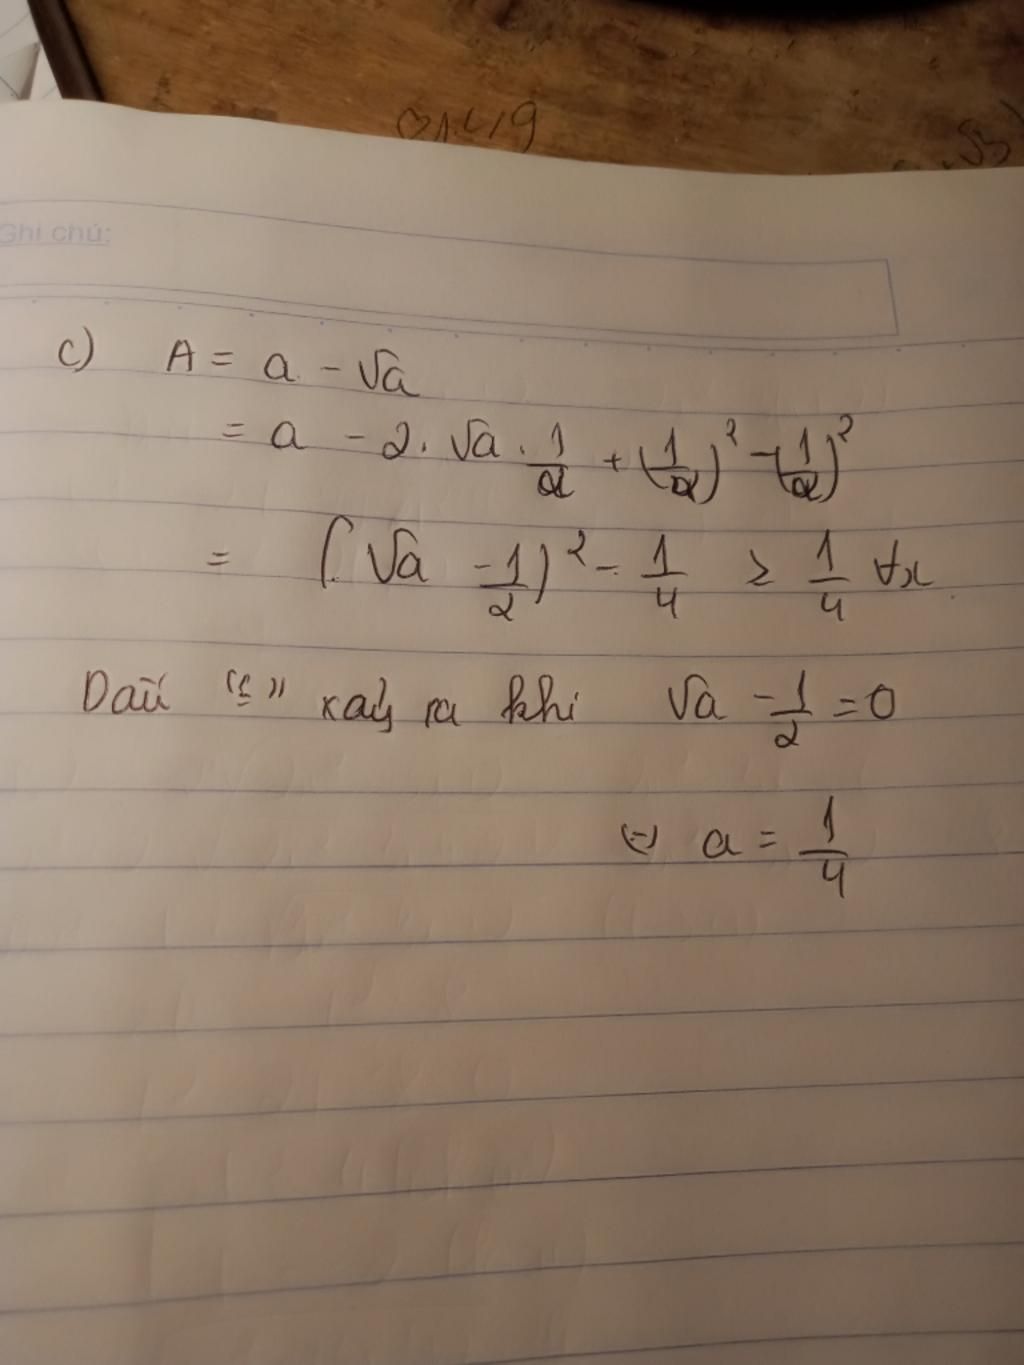 Ghi chú:
c) A = a - √a
= a - 2. √a . 1/2 + (1/2)² - (1/2)²
= (√a - 1/2)² - 1/4 ≥ 1/4 ∀x
Dấu "=" xảy ra khi √a - 1/2 = 0
⇔ a = 1/4